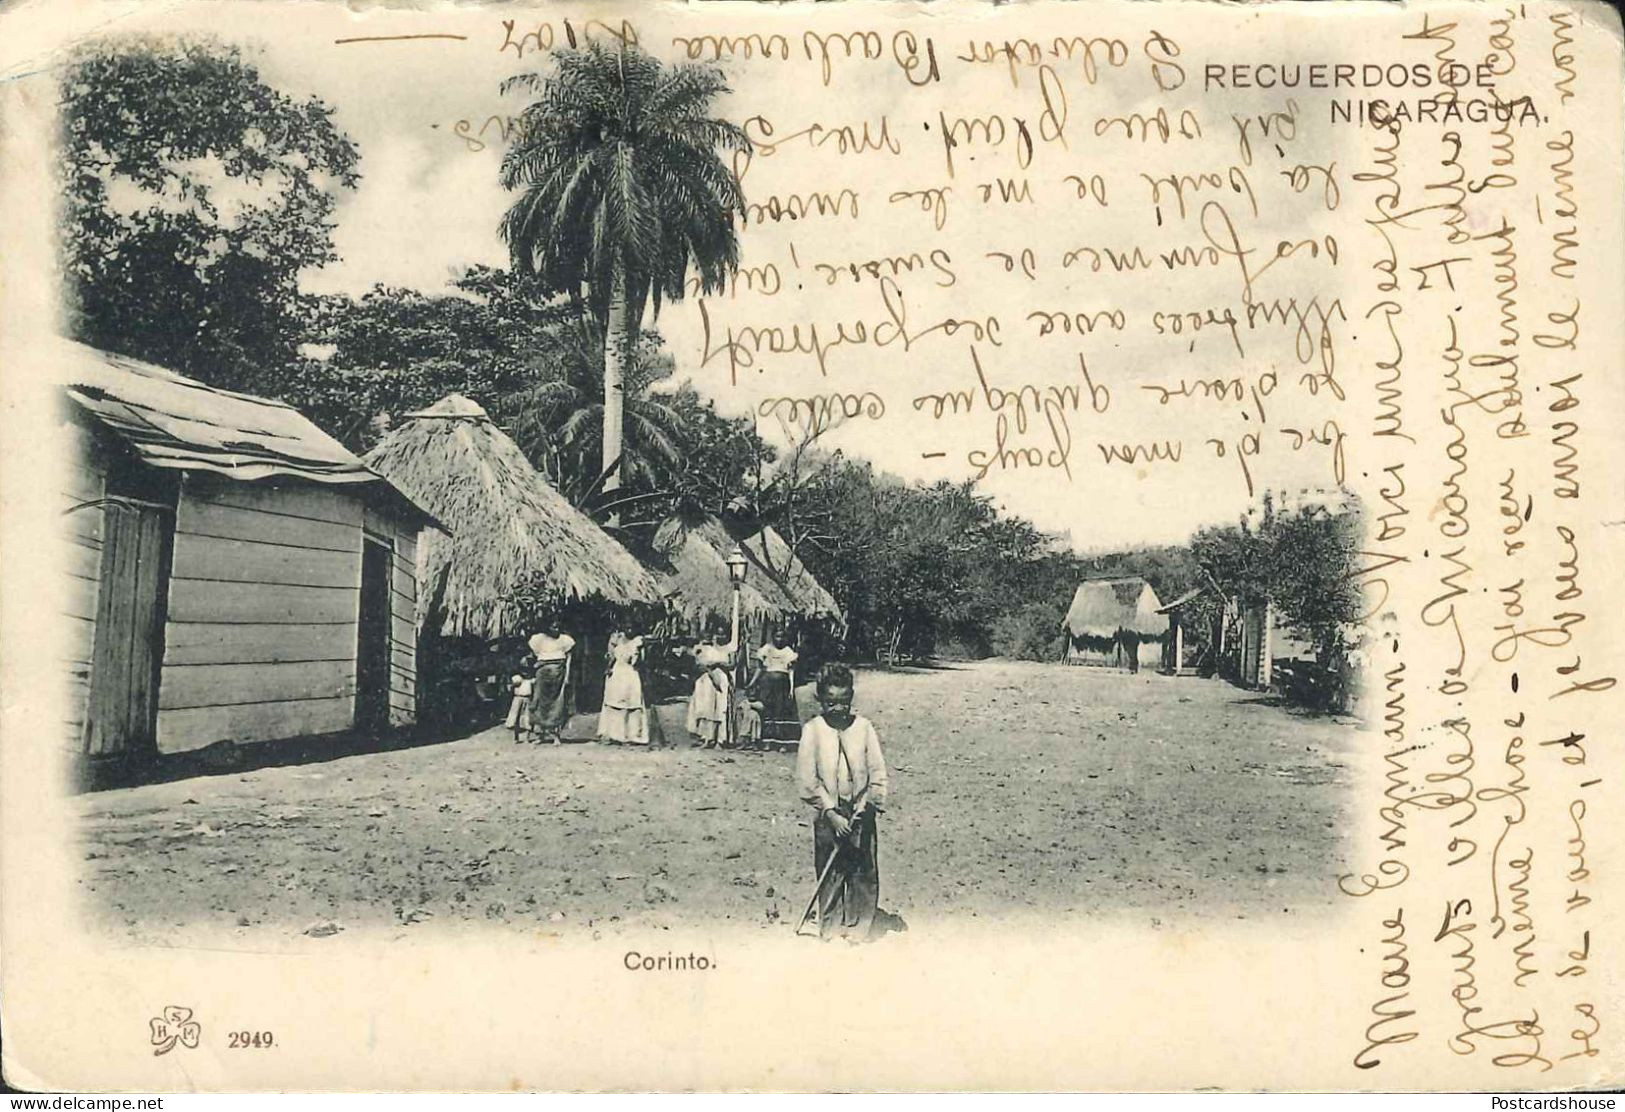 RECUERDOS DE
NICARAGUA.
Marie Enzmann - Voici une des plus
hauts villes de Nicaragua. Toutes ont
la même chose - J'ai reçu seulement deux car-
tes de vous, et je vous envoi le même nom
bre de mon pays -
Je désire quelques cartes
illustrées avec des portraits
des femmes de Suisse; ayez
la bonté de me les envoyer
s'il vous plait. mes
Salvator Diaz
Corinto.
H S M
2949.
delcampe.net
Postcardshouse